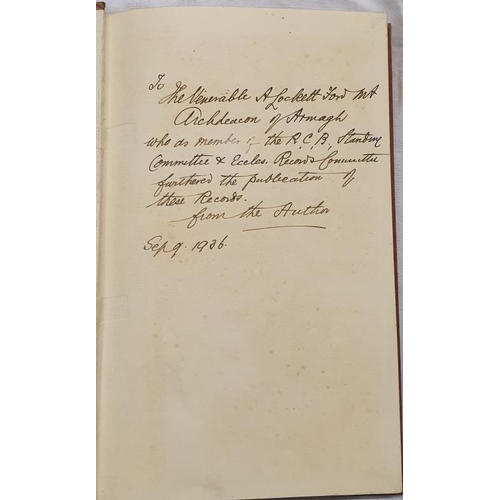 To
The Venerable A Lockett Ford MA
Archdeacon of Armagh
who as member of the R.C.B, Standing
Committee & Eccles. Records Committee
furthered the publication of
these Records.
from the Author
Sep 9. 1936.